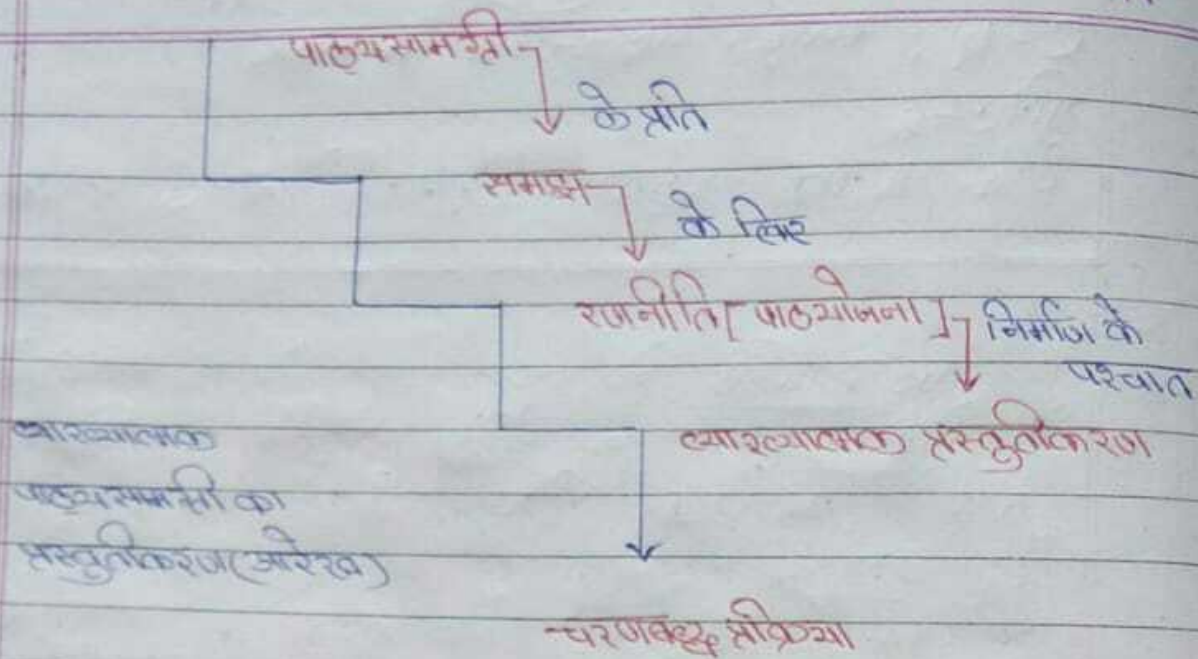 पाठ्यसामग्री
के प्रति
समझ
के लिए
रणनीति [पाठयोजना]
निर्माण के
पश्चात
व्याख्यात्मक प्रस्तुतीकरण
व्याख्यात्मक
पाठ्यसामग्री का
प्रस्तुतीकरण (आरेख)
चरणबद्ध प्रक्रिया